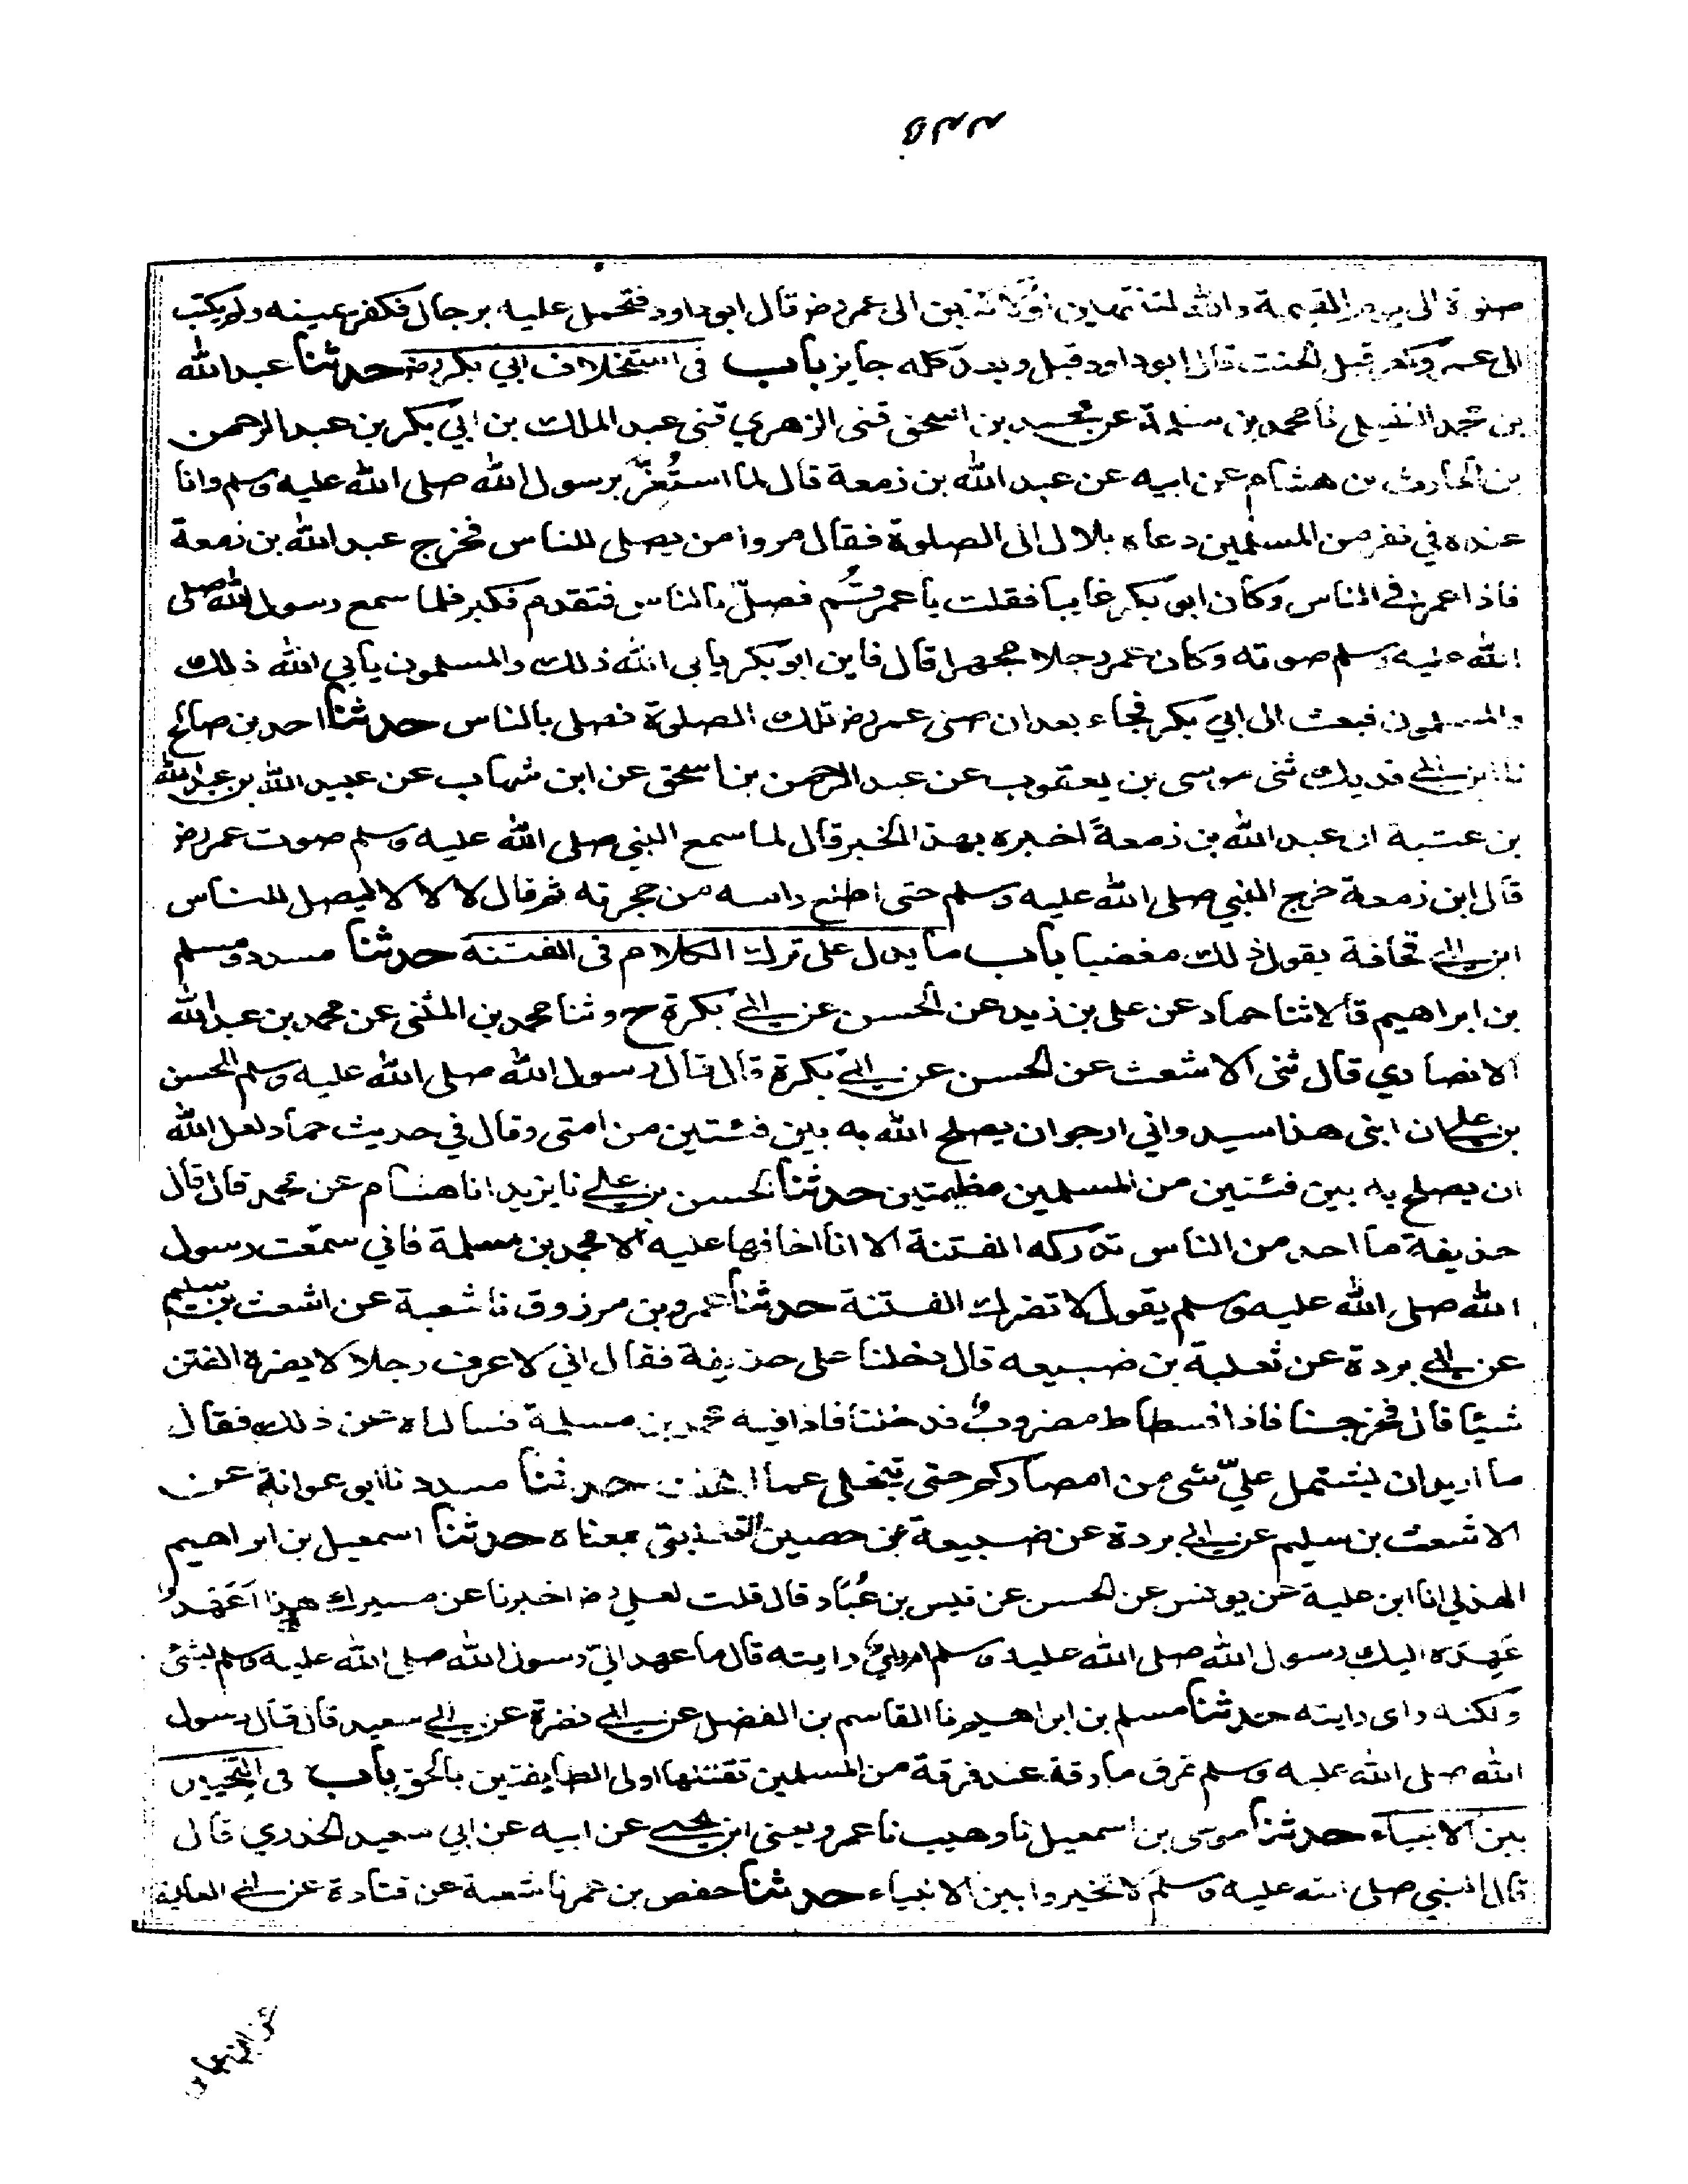 صلوة الى يوم القيمة والله لتنتهين او لاكتبن الى عمر رض قال ابو داود فتحمل عليه برجال فكفر يمينه ولم يكتب
الى عمر وكفر قبل الحنث قال ابو داود قبل وبعد كله جايز باب في استخلاف ابي بكر رض حدثنا عبد الله
بن محمد النفيلي نا محمد بن سلمة عن محمد بن اسحق ثنى الزهري ثنى عبد الملك بن ابي بكر بن عبد الرحمن
بن الحارث بن هشام عن ابيه عن عبد الله بن زمعة قال لما استعز برسول الله صلى الله عليه وسلم وانا
عنده في نفر من المسلمين دعاه بلال الى الصلوة فقال مروا من يصلى للناس فخرج عبد الله بن زمعة
فاذا عمر في الناس وكان ابو بكر غايبا فقلت يا عمر قُم فصلّ بالناس فتقدم فكبر فلما سمع رسول الله صلى
الله عليه وسلم صوته وكان عمر رجلا مجهرا قال فاين ابو بكر يابى الله ذلك والمسلمون يابى الله ذلك
والمسلمون فبعث الى ابي بكر فجاء بعد ان صلى عمر رض تلك الصلوة فصلى بالناس حدثنا احمد بن صالح
نا ابن ابي فديك ثنى موسى بن يعقوب عن عبد الرحمن بن اسحق عن ابن شهاب عن عبيد الله بن عبد الله
بن عتبة ان عبد الله بن زمعة اخبره بهذا الخبر قال لما سمع النبي صلى الله عليه وسلم صوت عمر رض
قال ابن زمعة خرج النبي صلى الله عليه وسلم حتى اطلع راسه من حجرته ثم قال لا لا لا ليصل للناس
ابن ابي قحافة يقول ذلك مغضبا باب ما يدل على ترك الكلام في الفتنة حدثنا مسدد ومسلم
بن ابراهيم قالا ثنا حماد عن على بن زيد عن الحسن عن ابي بكرة ح وثنا محمد بن المثنى عن محمد بن عبد الله
الانصاري قال ثنى الاشعث عن الحسن عن ابي بكرة قال قال رسول الله صلى الله عليه وسلم للحسن
بن علي ان ابنى هذا سيد واني ارجو ان يصلح الله به بين فئتين من امتى وقال في حديث حماد لعل الله
ان يصلح به بين فئتين من المسلمين عظيمتين حدثنا الحسن بن علي نا يزيد انا هشام عن محمد قال قال
حذيفة ما احد من الناس تدركه الفتنة الا انا اخافها عليه الا محمد بن مسلمة فاني سمعت رسول
الله صلى الله عليه وسلم يقول لا تضرك الفتنة حدثنا عمرو بن مرزوق نا شعبة عن اشعث بن سليم
عن ابي بردة عن ثعلبة بن ضبيعه قال دخلنا على حذيفة فقال اني لاعرف رجلا لا يضره الفتن
شيئا قال فخرجنا فاذا فسطاط مضروب فدخلنا فاذا فيه محمد بن مسلمة فسالناه عن ذلك فقال
ما اريد ان يشتمل عليّ شى من امصاركم حتى تنجلى عما انجلت حدثنا مسدد نا ابو عوانة عن
الاشعث بن سليم عن ابي بردة عن ضبيعة بن حصين الثعلبي بمعناه حدثنا اسمعيل بن ابراهيم
الهذلي انا ابن علية عن يونس عن الحسن عن قيس بن عُبَاد قال قلت لعلي رض اخبرنا عن مسيرك هذا اَعَهد
عَهِدَه اليك رسول الله صلى الله عليه وسلم ام راى رايته قال ما عهد اليّ رسول الله صلى الله عليه وسلم بشئ
ولكنه راى رايته حدثنا مسلم بن ابراهيم نا القاسم بن الفضل عن ابي نضرة عن ابي سعيد قال قال رسول
الله صلى الله عليه وسلم تمرق مارقة عند فرقة من المسلمين تقتلها اولى الطايفتين بالحق باب في التخيير
بين الانبياء حدثنا موسى بن اسمعيل نا وهيب نا عمرو يعنى ابن يحيى عن ابيه عن ابي سعيد الخدري قال
قال النبي صلى الله عليه وسلم لا تخيروا بين الانبياء حدثنا حفص بن عمر نا شعبة عن قتادة عن ابي العالية